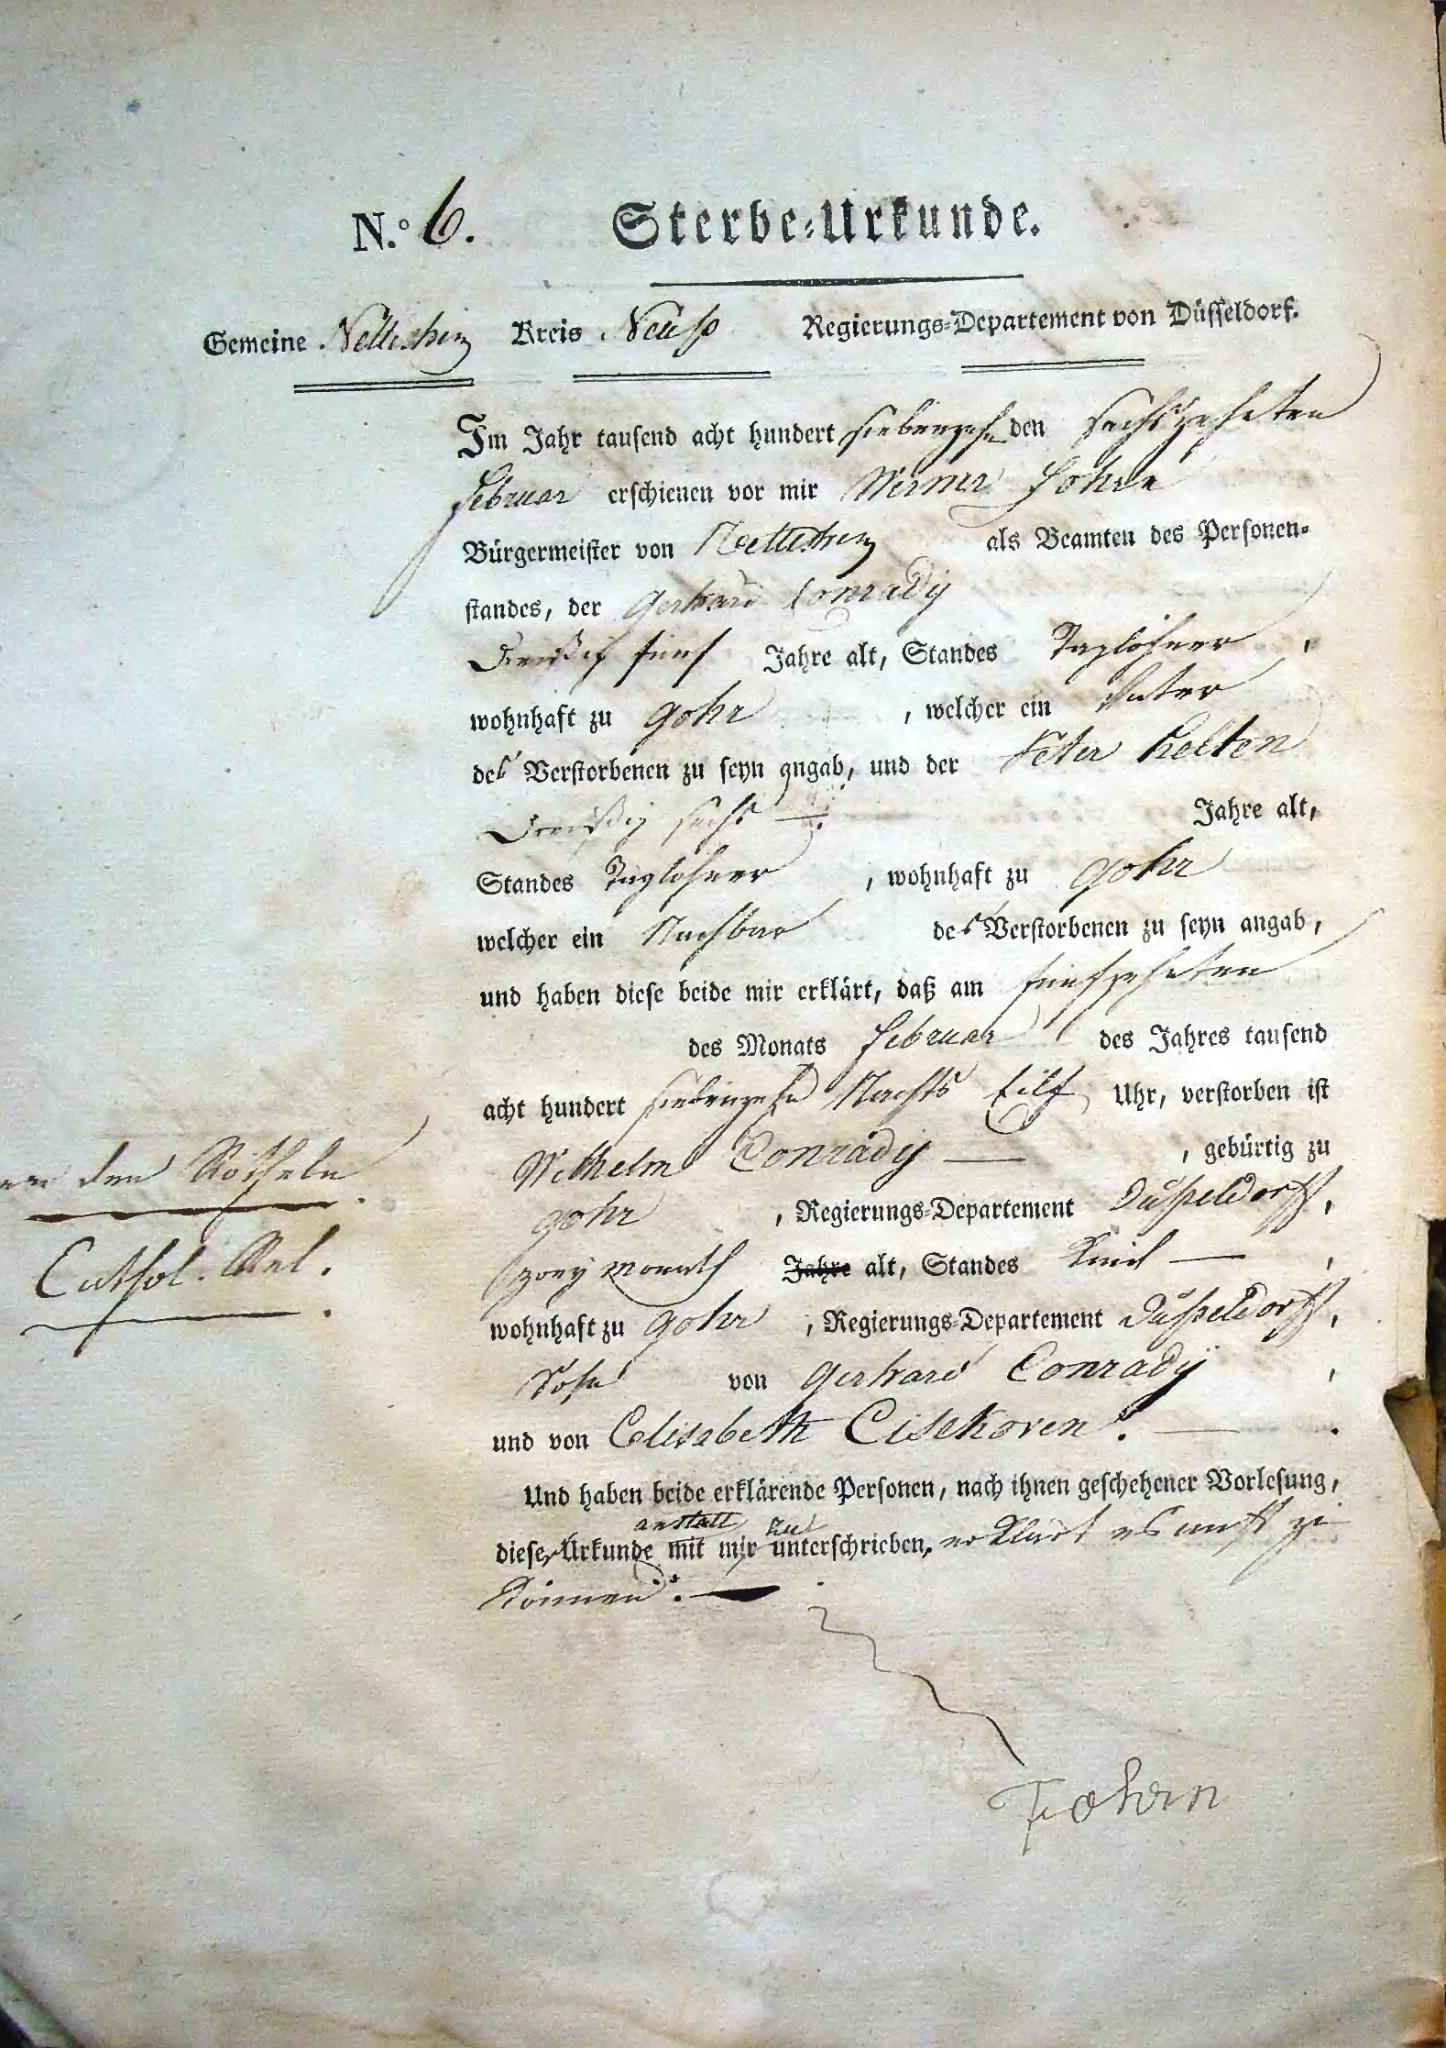 N.º 6. Sterbe-Urkunde.
Gemeine Nettesheim Kreis Neuß Regierungs-Departement von Düsseldorf.
Im Jahr tausend acht hundert siebenzehn den sechszehnten
Februar erschienen vor mir Werner
Bürgermeister von Nettesheim als Beamten des Personen-
standes, der Gerhard Conrady
Dreißig fünf Jahre alt, Standes Taglöhner,
wohnhaft zu Gohr, welcher ein Vater
des Verstorbenen zu seyn angab, und der Peter
Dreißig sechs — Jahre alt,
Standes Taglöhner, wohnhaft zu Gohr
welcher ein Nachbar des Verstorbenen zu seyn angab,
und haben diese beide mir erklärt, daß am fünfzehnten
des Monats Februar des Jahres tausend
acht hundert siebenzehn Nachts Eilf Uhr, verstorben ist
Wilhelm Conrady —, gebürtig zu
Gohr, Regierungs-Departement Düßeldorff,
zwey Monath Jahre alt, Standes Kind —,
wohnhaft zu Gohr, Regierungs-Departement Düßeldorff,
Sohn von Gerhard Conrady,
und von Elisabeth Eisekoven. —.
Und haben beide erklärende Personen, nach ihnen geschehener Vorlesung,
anstatt zu
diese Urkunde mit mir unterschrieben, erklärt es nicht zu
können. —
an den Rötheln.
Cathol. Rel.